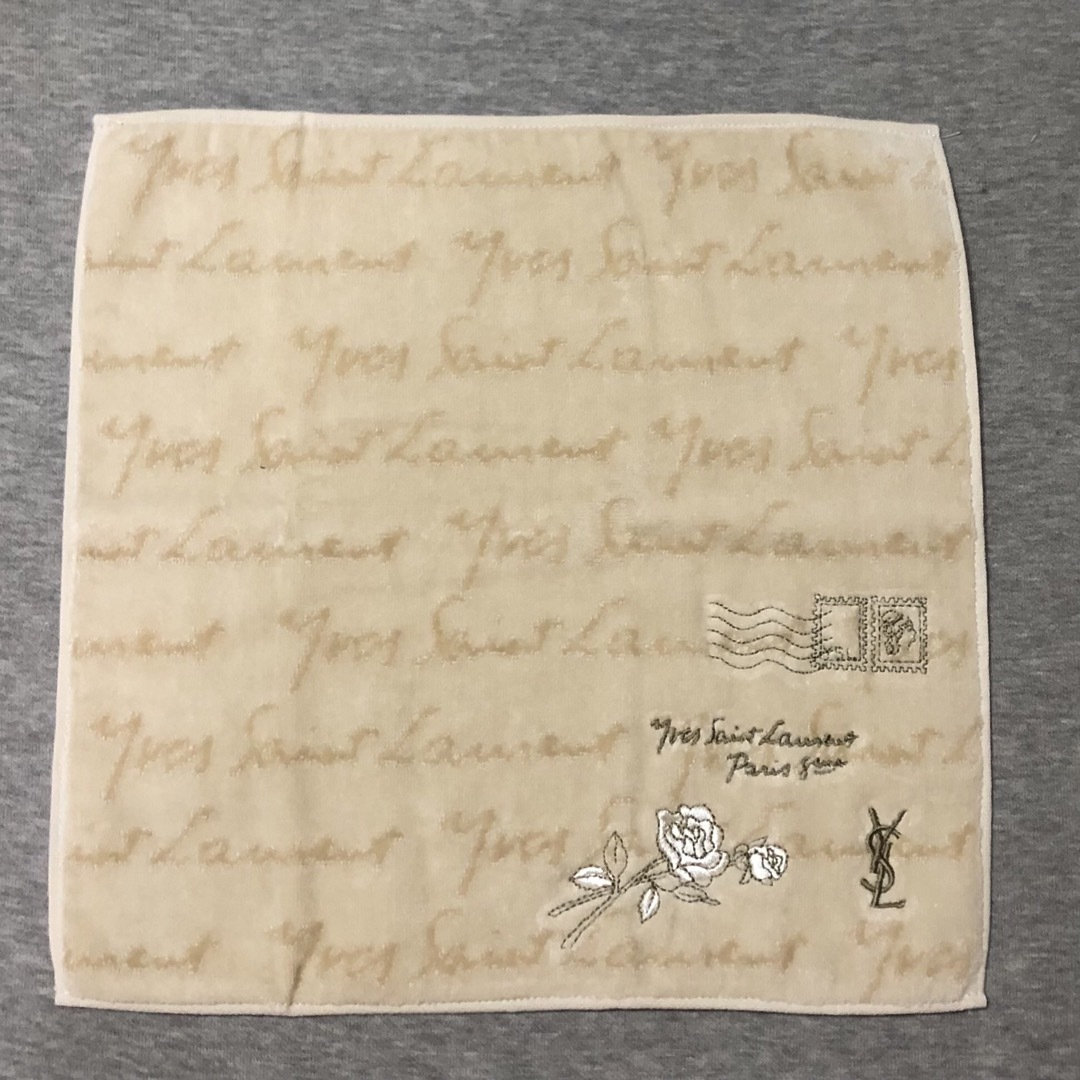 Yves Saint Laurent Yves Saint
Laurent Yves Saint Laurent
Yves Saint Laurent Yves
Yves Saint Laurent Yves Saint L
Laurent Yves Saint Laurent
Yves Saint Laurent
Yves Saint Laurent
Yves Saint Laurent
Paris 8ème
Laurent Yves
YSL
Yves Saint Laurent Yves